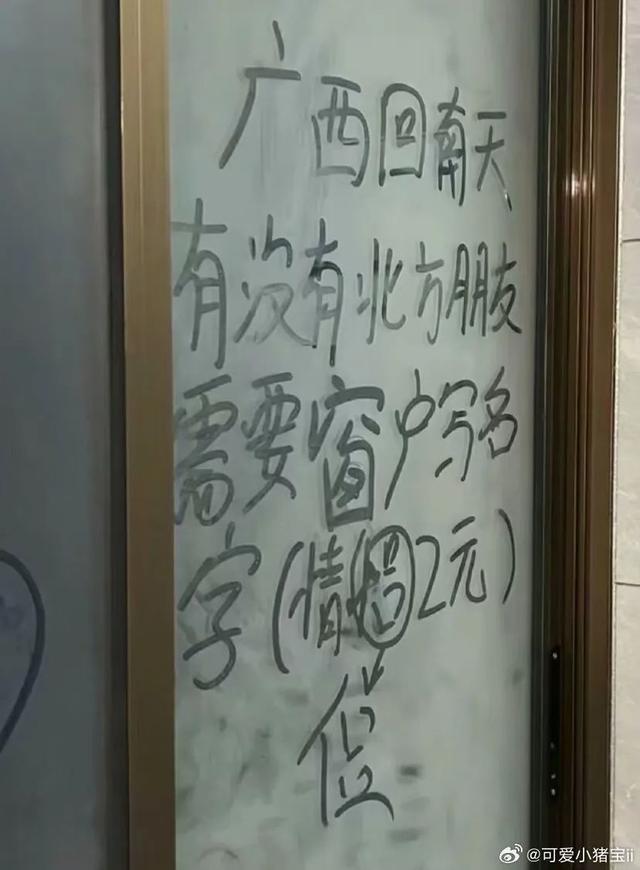 广西回南天
有没有北方朋友
需要窗户写名
字(情2元)
@可爱小猪宝ii